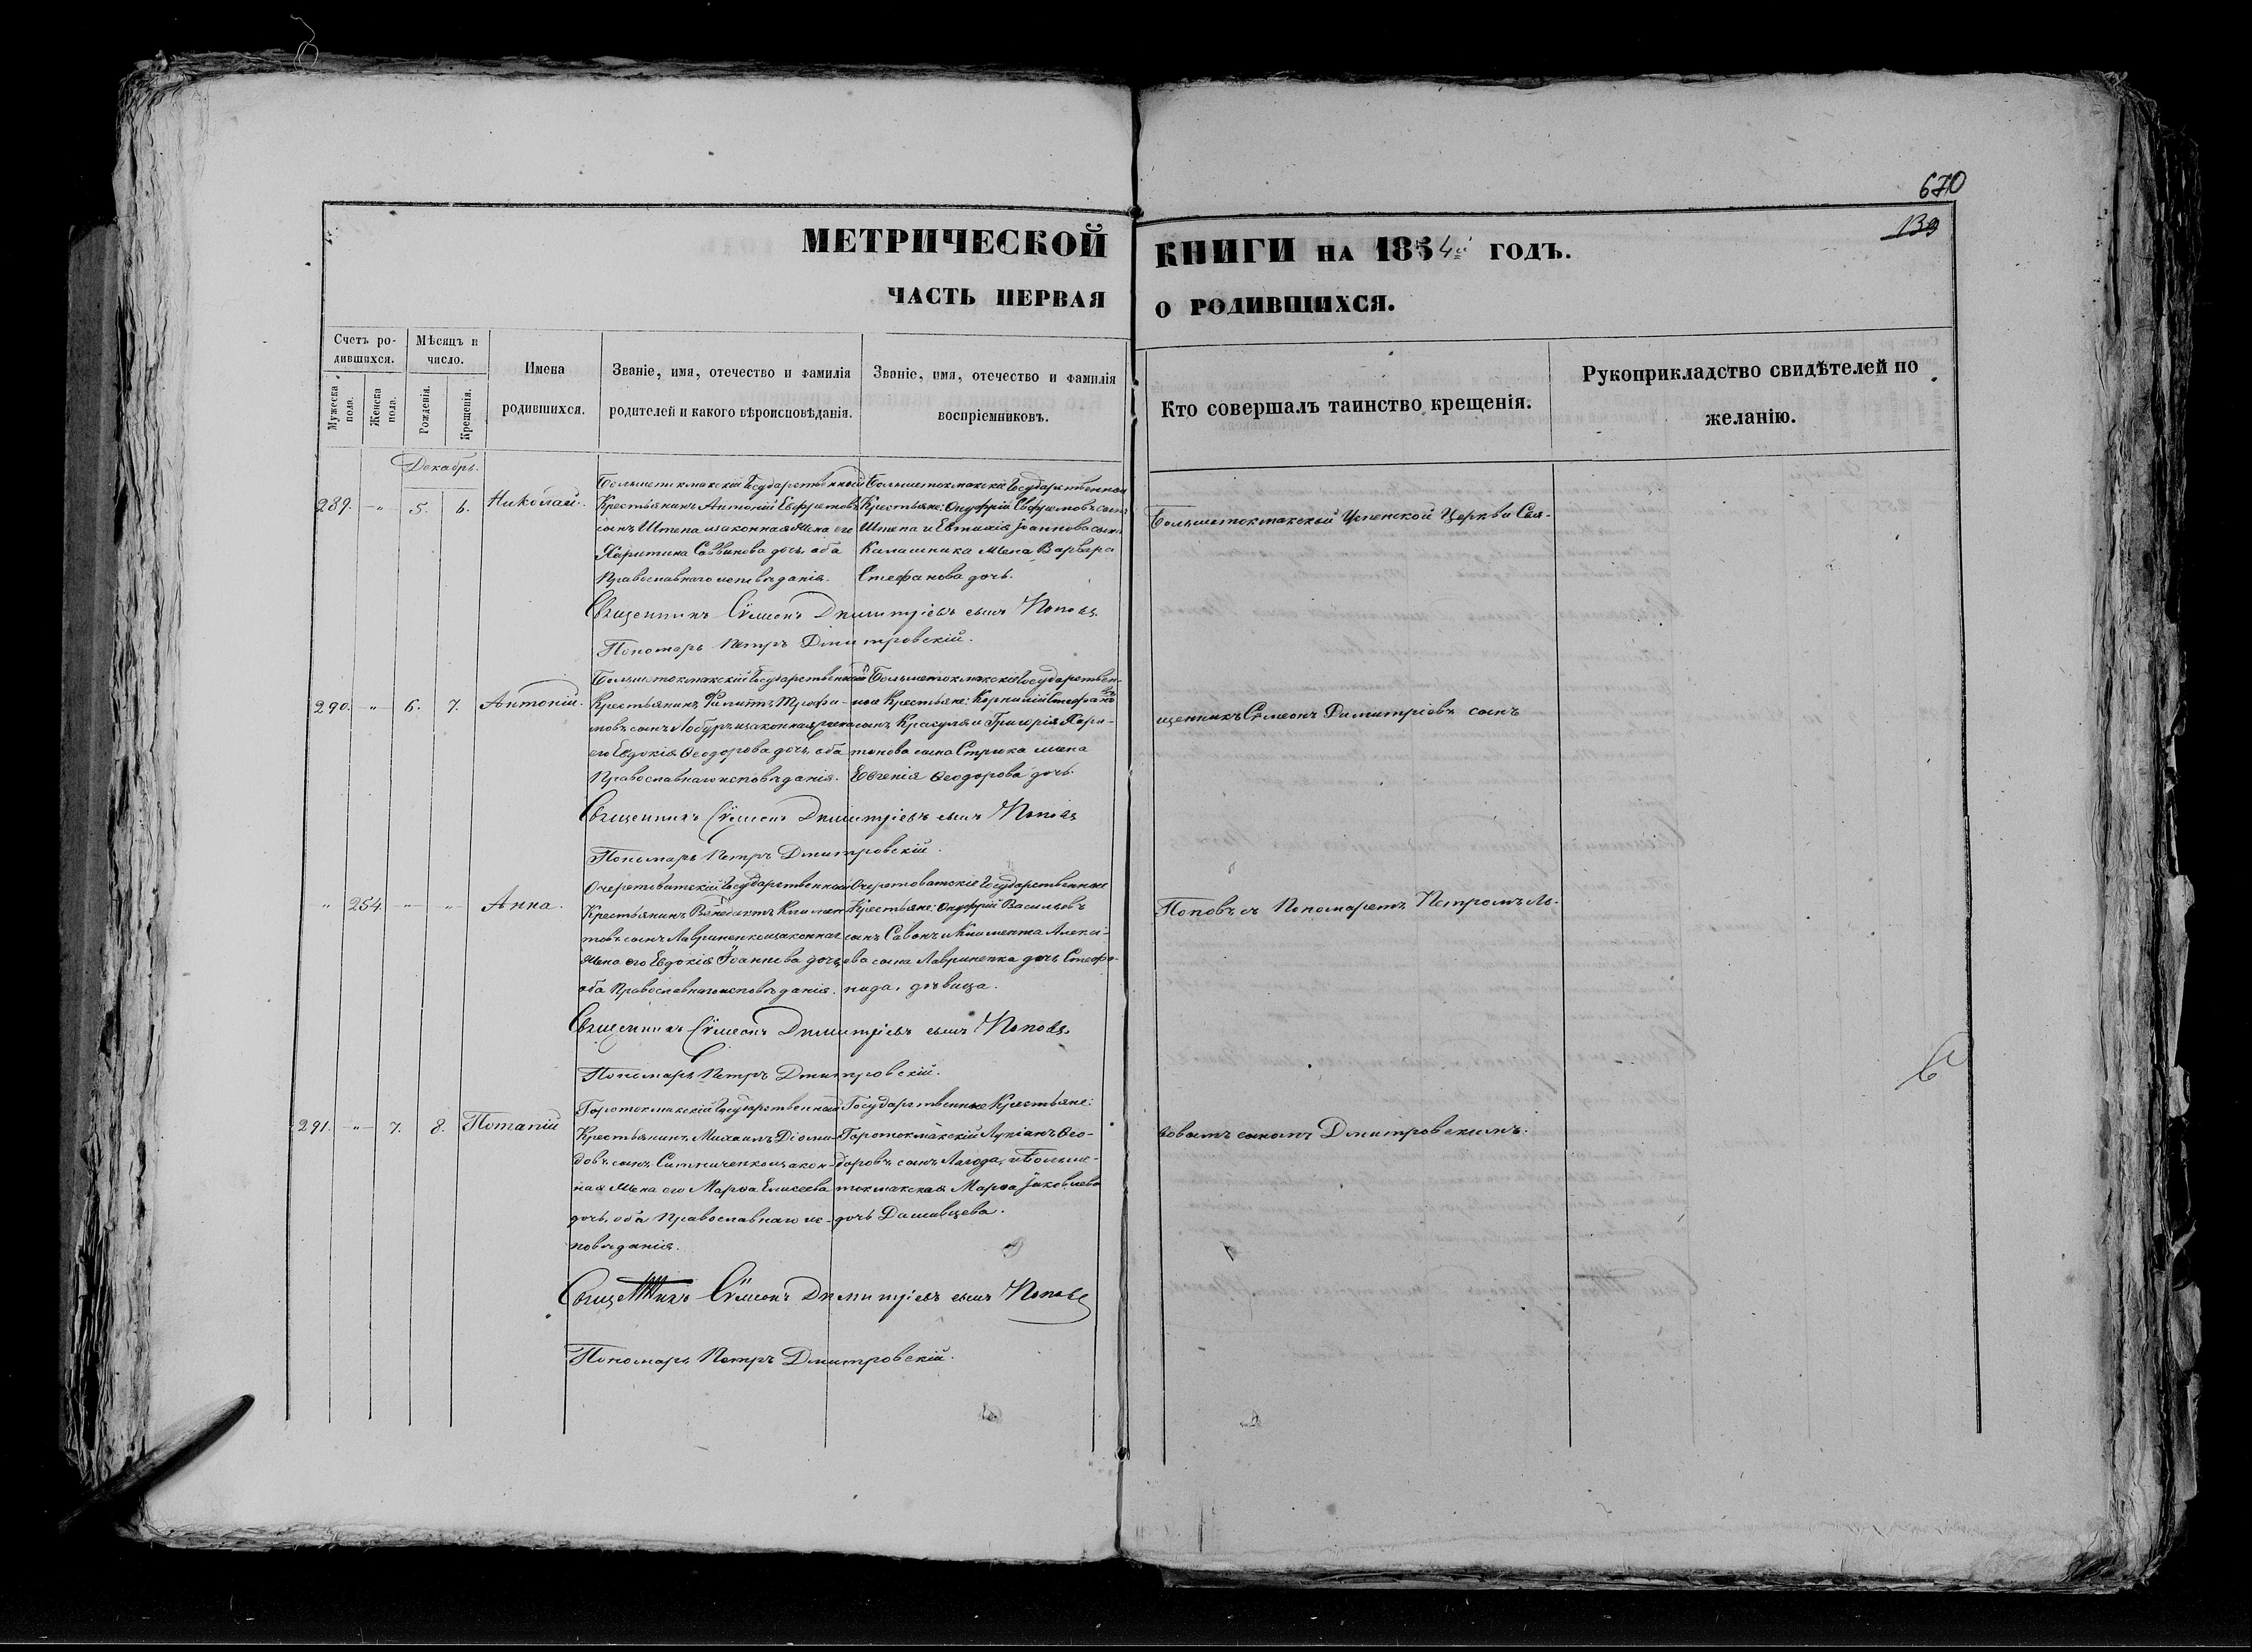 670
139
МЕТРИЧЕСКОЙ КНИГИ НА 1854й ГОДЪ.
ЧАСТЬ ПЕРВАЯ О РОДИВШИХСЯ.
Счетъ родившихся.
Мужеска пола.
Женска пола.
Мѣсяцъ и число.
Рожденія.
Крещенія.
Имена родившихся.
Званіе, имя, отечество и фамилія
родителей и какого вѣроисповѣданія.
Званіе, имя, отечество и фамилія
воспріемниковъ.
Кто совершалъ таинство крещенія.
Рукоприкладство свидѣтелей по
желанію.
Декабрь.
289. -"- 5. 6. Николай.
Большетокмакскій Государственный
Крестьянинъ Антоній Евфимовъ
сынъ Штепа и законная жена его
Харитина Саввинова дочь, оба
Православнаго исповѣданія.
Большетокмакскіе Государственные
Крестьяне: Онуфрій Евфимовъ сынъ
Штепа и Евтихія Іоаннова сына
Калашника жена Варвара
Стефанова дочь.
Священникъ Сѵмеонъ Димитріевъ сынъ Поповъ
Пономарь Петръ Дмитровскій.
290. -"- 6. 7. Антоній.
Большетокмакскій Государственный
Крестьянинъ Филиппъ Трофимовъ сынъ и законная жена
его Евдокія Ѳеодорова дочь, оба
Православнаго исповѣданія.
Большетокмакскіе Государственные Крестьяне: Корнилій Стефановъ
сынъ Красуля и Григорія Харитонова сына Стрюка жена
Евгенія Ѳеодорова дочь.
Священникъ Сѵмеонъ Димитріевъ сынъ Поповъ
Пономарь Петръ Дмитровскій.
" 254 -"- -"- Анна.
Очеретоватскій Государственный
Крестьянинъ Венедиктъ Климентовъ сынъ Лавриненко и законная
жена его Евдокія Іоаннова дочь,
оба Православнаго исповѣданія.
Очеретоватскіе Государственные
Крестьяне: Онуфрій Васильевъ
сынъ Савонъ и Климента Алексіева сына Лавриненка дочь Стефанида, дѣвица.
Священникъ Сѵмеонъ Димитріевъ сынъ Поповъ.
Пономарь Петръ Дмитровскій.
291. -"- 7. 8. Потапій
Государственный
Крестьянинъ Михаилъ Діомидовъ сынъ Ситниченко и законная жена его Марѳа Елисеева
дочь, оба Православнаго исповѣданія.
Государственные Крестьяне:
Лукіанъ Ѳеодоровъ сынъ Лагода, и Большетокмакская Марѳа Іаковлева
дочь Дашивцева.
Священникъ Сѵмеонъ Димитріевъ сынъ Поповъ
Пономарь Петръ Дмитровскій.
Большетокмакской Успенской Церкви Священникъ Сѵмеонъ Димитріевъ сынъ
Поповъ съ Пономаремъ Петромъ Львовымъ сыномъ Дмитровскимъ.